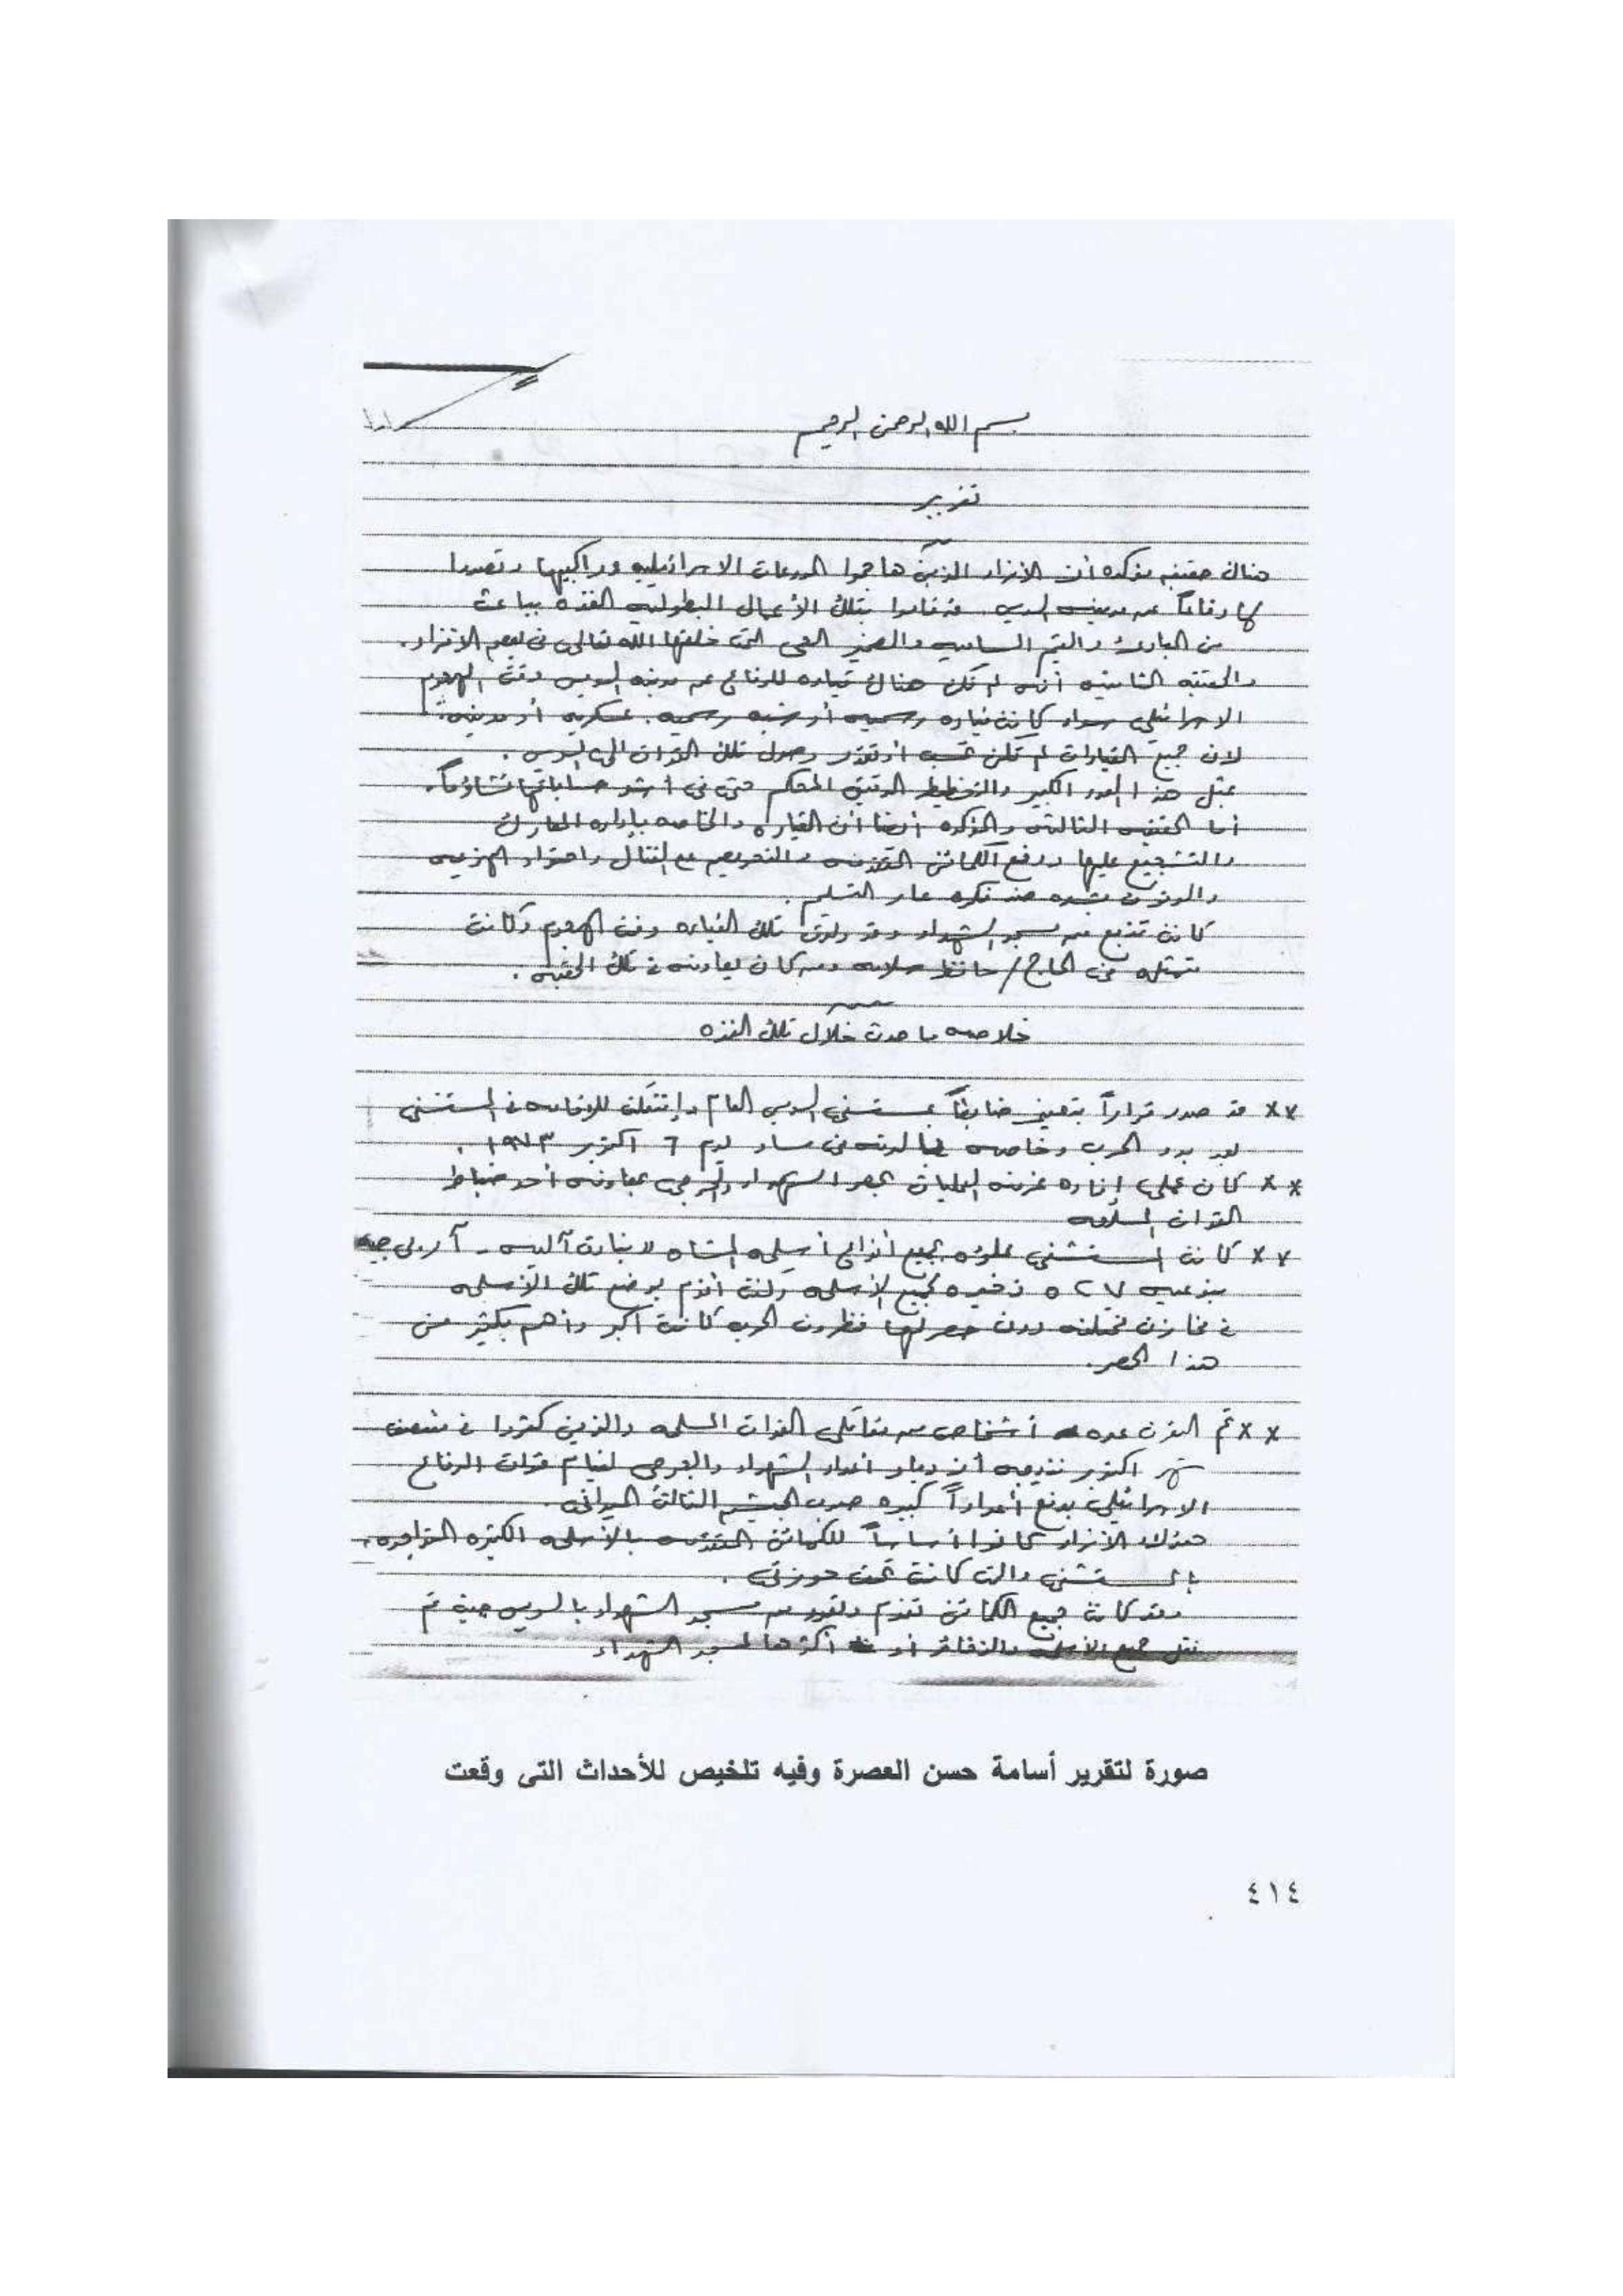 بسم الله الرحمن الرحيم
تقرير
هناك حقيقه مؤكده أن الأفراد الذين هاجموا المدرعات الاسرائيليه وراكبيها وتصدوا
لها دفاعاً عن مدينه السويس قد قاموا بتلك الأعمال البطوليه الفذه بباعث
من المبادئ والقيم الساميه والضمير الحى التى خلقها الله تعالى فى بعض الأفراد.
والحقيقه الثانيه أنه لم تكن هناك قياده للدفاع عن مدينه السويس وقت الهجوم
الاسرائيلى سواء كانت قياده رسميه أو شبه رسميه. عسكريه أو مدنيه.
لان جميع القيادات لم تكن تحسب أو تقدر وصول تلك القوات الى السويس.
بمثل هذا العدد الكبير والتخطيط الدقيق المحكم حتى فى أشد حساباتها تشاؤماً.
أما الحقيقه الثالثه والمؤكده أيضا أن القياده والخاصه بإداره المعارك
والتشجيع عليها ودفع الكمائن المتقدمه والتحريض على القتال
والوقوف بشده ضد فكره عار التسليم.
كانت تنبع من مسجد الشهداء وقد ولدت تلك القياده وقت الهجوم وكانت
متمثله فى الحاج/ حافظ سلامه ومن كان يعاونه فى تلك الحقبه.
خلاصه ما حدث خلال تلك الفتره
×× قد صدر قراراً بتعيينى ضابطاً بمستشفى السويس العام وإنتقلت للإقامه فى المستشفى
بعد بدء الحرب وخاصه فى مساء يوم ٦ أكتوبر ١٩٧٣.
×× كان عملى إداره غرفه العمليات بحصر الشهداء والجرحى بمعاونه أحد ضباط
القوات المسلحه
×× كانت المستشفى مملوءه بجميع أنواع أسلحه المشاه بنادق آليه - آر بى جيه
بنوعيه ٢٧ ٥ ذخيره لجميع الأسلحه وكنت أقوم بوضع تلك الأسلحه
فى مخازن مختلفه دون حصر لها فظروف الحرب كانت أكبر وأهم بكثير من
هذا الحصر.
×× تم عده أشخاص من مقاتلى القوات المسلحه والذين كثروا فى منتصف
شهر أكتوبر نتيجه أعداد الشهداء والجرحى لقيام قوات الدفاع
الاسرائيلى بدفع أعداداً كبيره صوب الجيش الثالث الميدانى.
هؤلاء الأفراد كانوا أساساً للكمائن المتقدمه بالأسلحه الكثيره المتواجده
بالمستشفى والتى كانت تحت حوزتى.
وقد كانت جميع الكمائن تقوم وتعود من مسجد الشهداء بالسويس حيث تم
نقل جميع الأسلحه والذخائر أو أكثرها لمسجد الشهداء
صورة لتقرير أسامة حسن العصرة وفيه تلخيص للأحداث التى وقعت
٤١٤